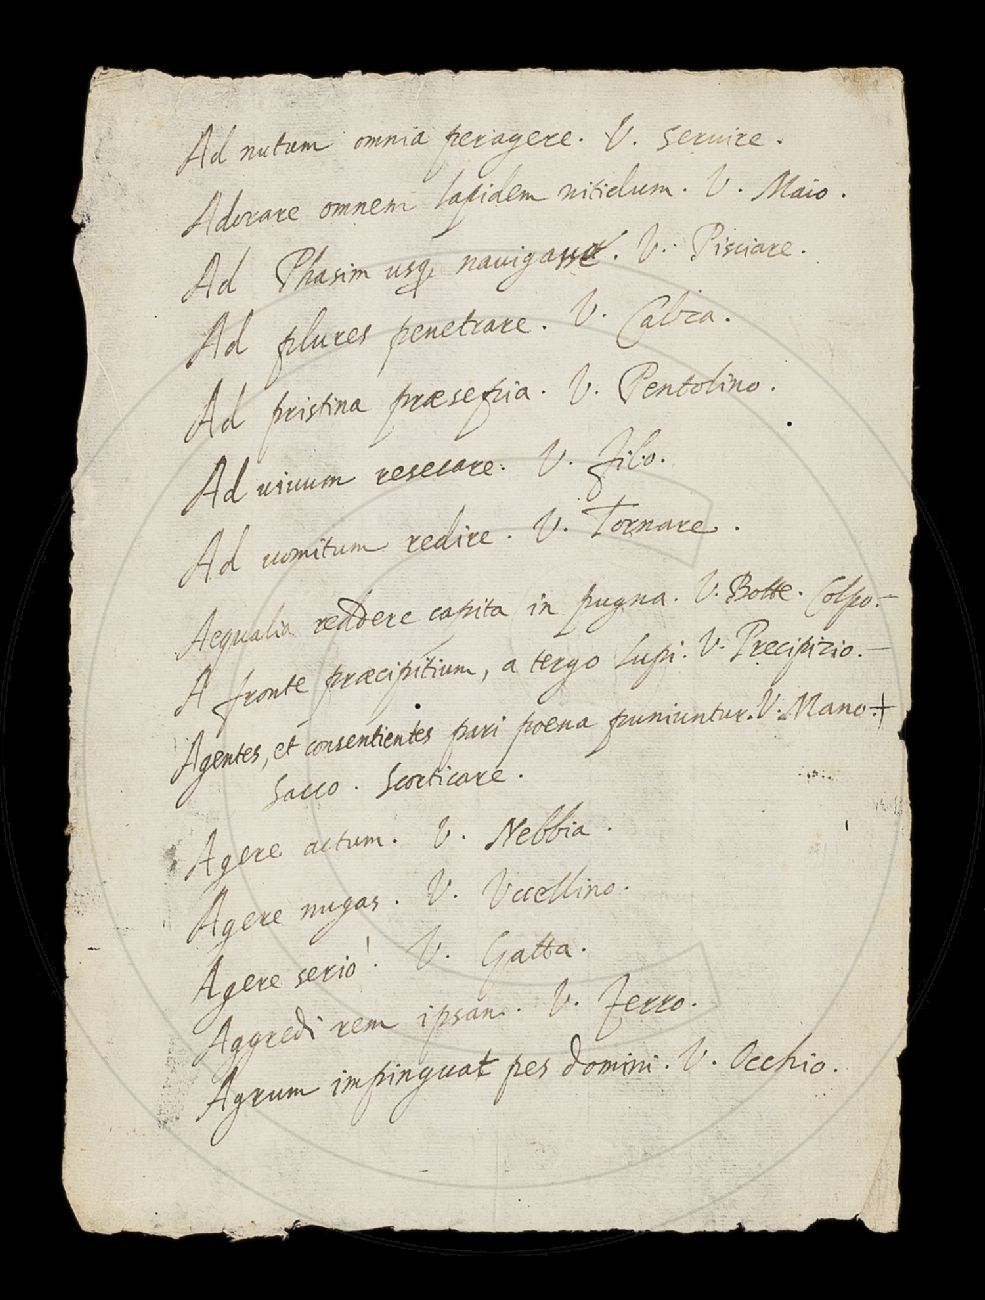 Ad nutum omnia peragere. V. Servire.
Adorare omnem lapidem nitidum. V. Maio.
Ad Phasim usq navigasse. V. Pisciare.
Ad plures penetrare. V. Calza.
Ad pristina præsepia. V. Pentolino.
Ad vivum resecare. V. Filo.
Ad vomitum redire. V. Tornare.
Aequalia reddere capita in pugna. V. Botte. Colpo.-
A fronte præcipitium, a tergo lupi. V. Precipizio.-
Agentes, et consentientes pari poena puniuntur. V. Mano.+
Sacco. Scorticare.
Agere actum. V. Nebbia.
Agere nugas. V. Uccellino.
Agere serio'. V. Gatta.
Aggredi rem ipsam. V. Ferro.
Agrum impinguat pes domini. V. Occhio.